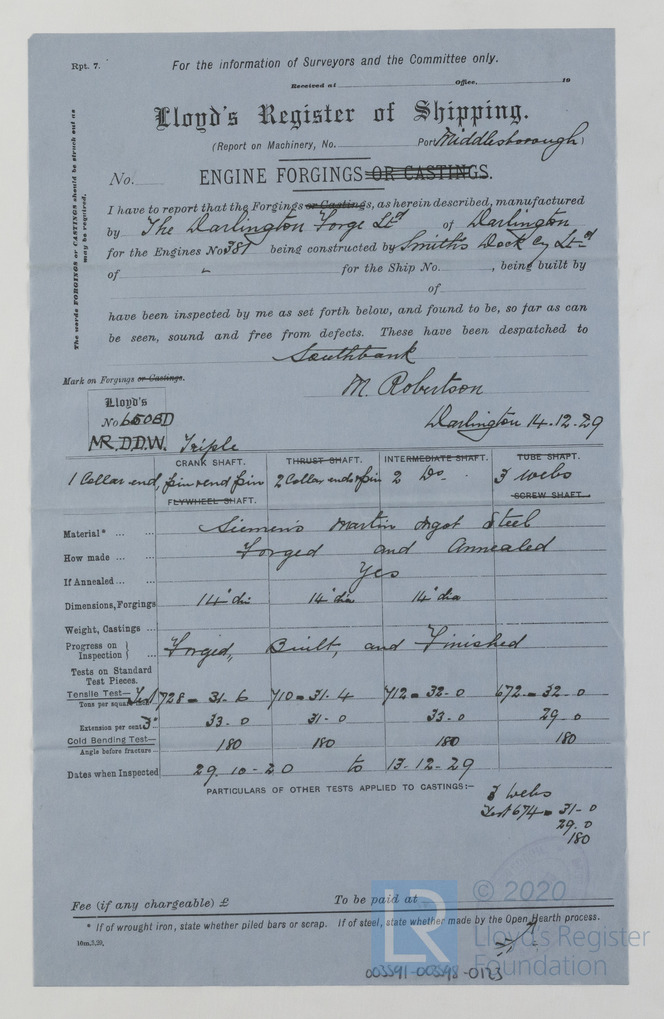 Rpt. 7.
For the information of Surveyors and the Committee only.
Received at Office. 19
Lloyd's Register of Shipping.
(Report on Machinery, No. Port Middlesborough)
No. ENGINE FORGINGS OR CASTINGS.
The words FORGINGS or CASTINGS should be struck out as
may be required.
I have to report that the Forgings or Castings, as herein described, manufactured
by The Darlington Forge Ltd of Darlington
for the Engines No 381 being constructed by Smith's Dock Coy Ltd
of for the Ship No. , being built by
of
have been inspected by me as set forth below, and found to be, so far as can
be seen, sound and free from defects. These have been despatched to
Southbank
Mark on Forgings or Castings.
M. Robertson
Lloyd's
No 6506D
MR.DDW.
Darlington 14-12-29
Triple
CRANK SHAFT. THRUST SHAFT. INTERMEDIATE SHAFT. TUBE SHAFT.
1 Collar end, pin & end pin 2 Collar ends & pin 2 Do 3 webs
FLYWHEEL SHAFT. SCREW SHAFT.
Material* Siemens Martin Ingot Steel
How made Forged and Annealed
If Annealed Yes
Dimensions, Forgings 14" dia 14" dia 14" dia
Weight, Castings
Progress on Inspection } Forged, Built, and Finished
Tests on Standard
Test Pieces.
Tensile Test— Tons per square Test 728 = 31.6 710 = 31.4 712 = 32.0 672 = 32.0
Extension per cent 3" 33.0 31.0 33.0 29.0
Cold Bending Test— Angle before fracture 180 180 180 180
Dates when Inspected 29.10-20 to 13-12-29
PARTICULARS OF OTHER TESTS APPLIED TO CASTINGS:—
3 webs
Test 674 = 31.0
29.0
180
Fee (if any chargeable) £ To be paid at
* If of wrought iron, state whether piled bars or scrap. If of steel, state whether made by the Open Hearth process.
16m,3,29.
LR
© 2020
Lloyd's Register
Foundation
003591-003598-0123